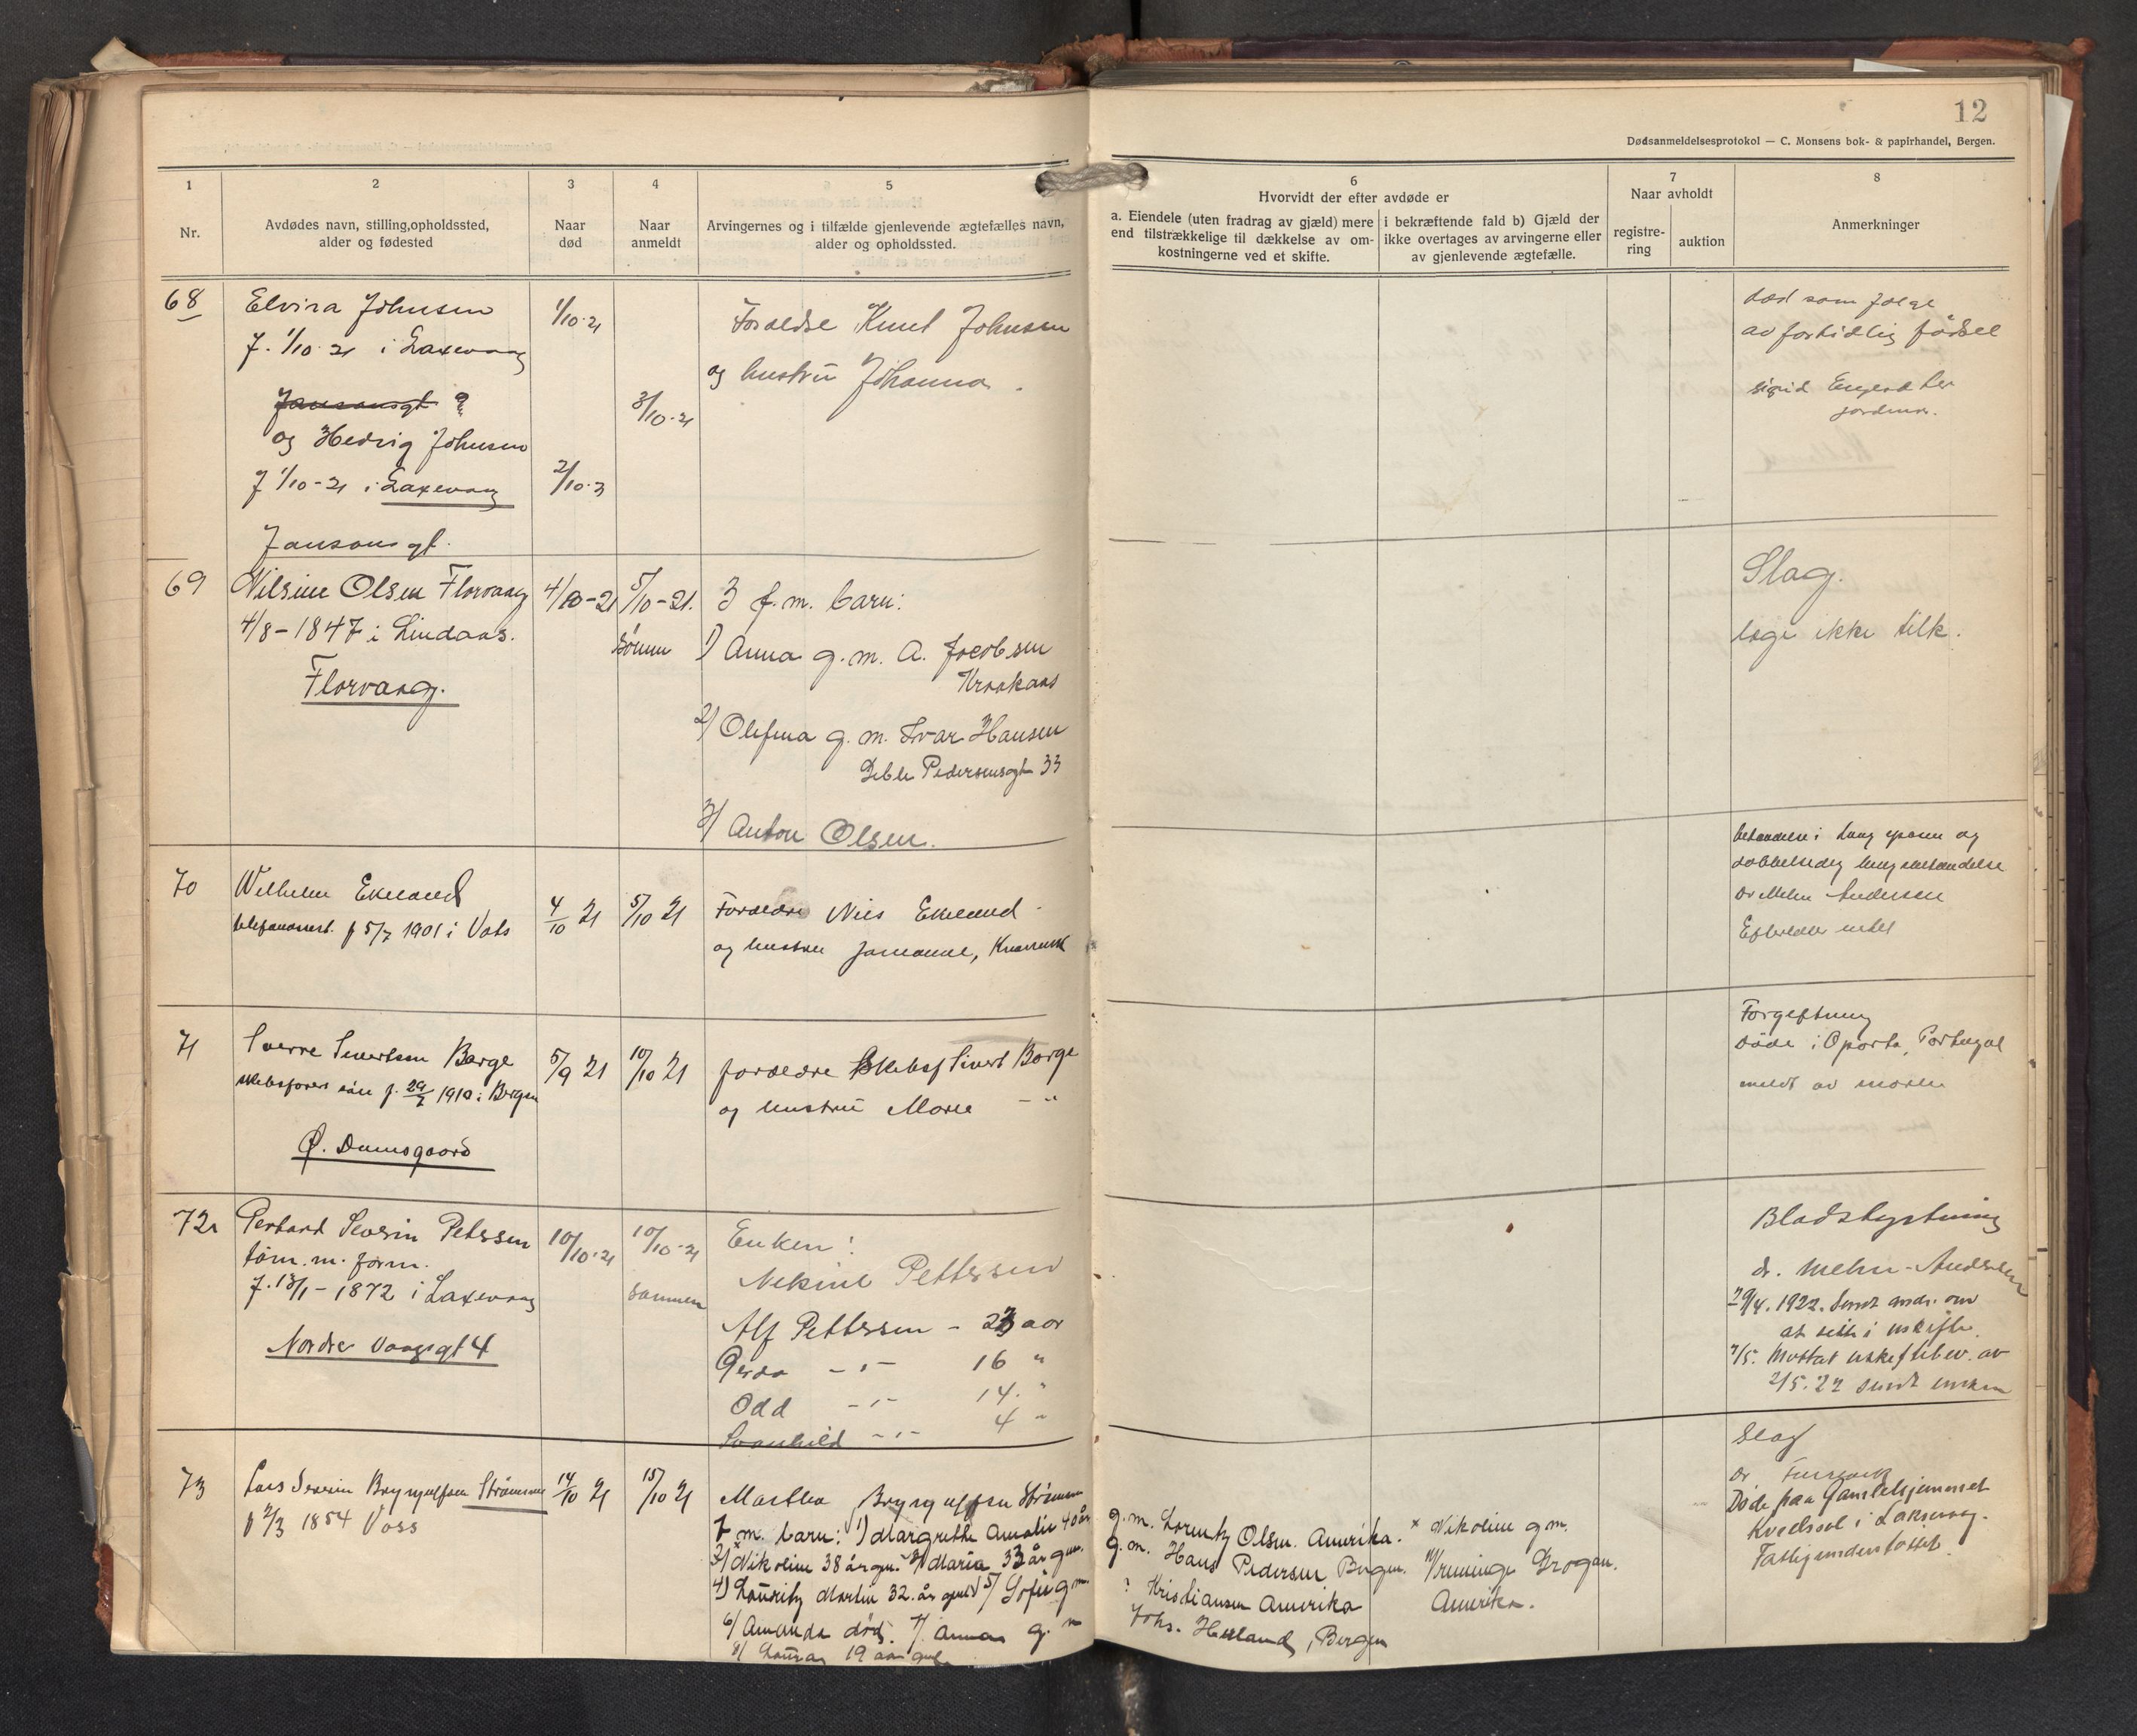 12
Dødsanmeldelsesprotokol — C. Monsens bok- & papirhandel, Bergen.
1
Nr.
2
Avdødes navn, stilling, opholdssted,
alder og fødested
3
Naar
død
4
Naar
anmeldt
5
Arvingernes og i tilfælde gjenlevende ægtefælles navn,
alder og opholdssted.
6
Hvorvidt der efter avdøde er
a. Eiendele (uten fradrag av gjæld) mere
end tilstrækkelige til dækkelse av om-
kostningerne ved et skifte.
i bekræftende fald b) Gjæld der
ikke overtages av arvingerne eller
av gjenlevende ægtefælle.
7
Naar avholdt
registre-
ring
auktion
8
Anmerkninger
68
Elvira Johnsen
f. 1/10 21 i Laxevaag
Jansonsgt ?
og Hedvig Johnsen
f 1/10-21 i Laxevaag
Jansonsgt.
1/10-21
2/10-21
3/10-21
Forældre Knut Johnsen
og hustru Johanna.
død som følge
av fortidlig fødsel
jordmor.
69
Nilsine Olsen Florvaag
4/8-1847 i Lindaas.
Florvaag.
4/10-21
5/10-21.
Sønnen
3 f.m. barn:
1) Anna g.m. A. Jacobsen
Kraakaas
2) Olefina g.m. Ivar Hansen
Pedersensgt 33
3) Anton Olsen.
Slag.
læge ikke tilk.
70
Wilhelm Ekeland
f 5/7 1901 i Vats
4/10 21
5/10 21
Forældre Nils Ekeland
og hustru
dobbeltsidig lungebetændelse
Dr Mehn Andersen
Efterlader intet
71
Sverre Sivertsen Borge
skibsførers søn f. 29/7 1910 i Bergen
Ø. Damsgaard
5/9 21
10/10 21
forældre Skibsf Sivert Borge
og hustru Marie - "
Forgiftning
Døde i Oporto, Portugal
meldt av moren
72
Gerhard Severin Pettersen
tøm.m. form.
f. 13/1-1872 i Laxevaag
Nordre Vaagsgt 4
10/10-21
10/10-21
sønnen
Enken:
Nekine Pettersen
Alf Pettersen - 23 aar
Gerda -"- 16 "
Odd -"- 14 "
Svanhild -"- 4 "
Blodstyrtning
dr. Mehn-Andersen
29/4. 1922. Sendt andr. om
at sitte i uskifte.
Mottat uskiftebev. av
2/5.22 sendt enken
73
Lars Severin Brynjulfsen Strømme
f 2/3 1854 Voss
14/10 21
15/10 21
Martha Brynjulfsen Strømme
7 m. barn: 1) Margrethe Amalie 40 år g.m. Lorentz Olsen. Amerika.
2) Nikoline 38 år gm. 3) Maria 33 år gm. g.m. Hans Pedersen Bergen.
4) Lauritz Martin 32 år gml 5) Sofie gm ? Kristiansen Amerika
6) Amanda død. 7) Anna g. m Johs. Hesland, Bergen
8) Laura 19 aar gml
x Nikoline gm.
Amerika.
Slag
Døde paa Gamlehjemmet
Kveldsol i Laksevaag.